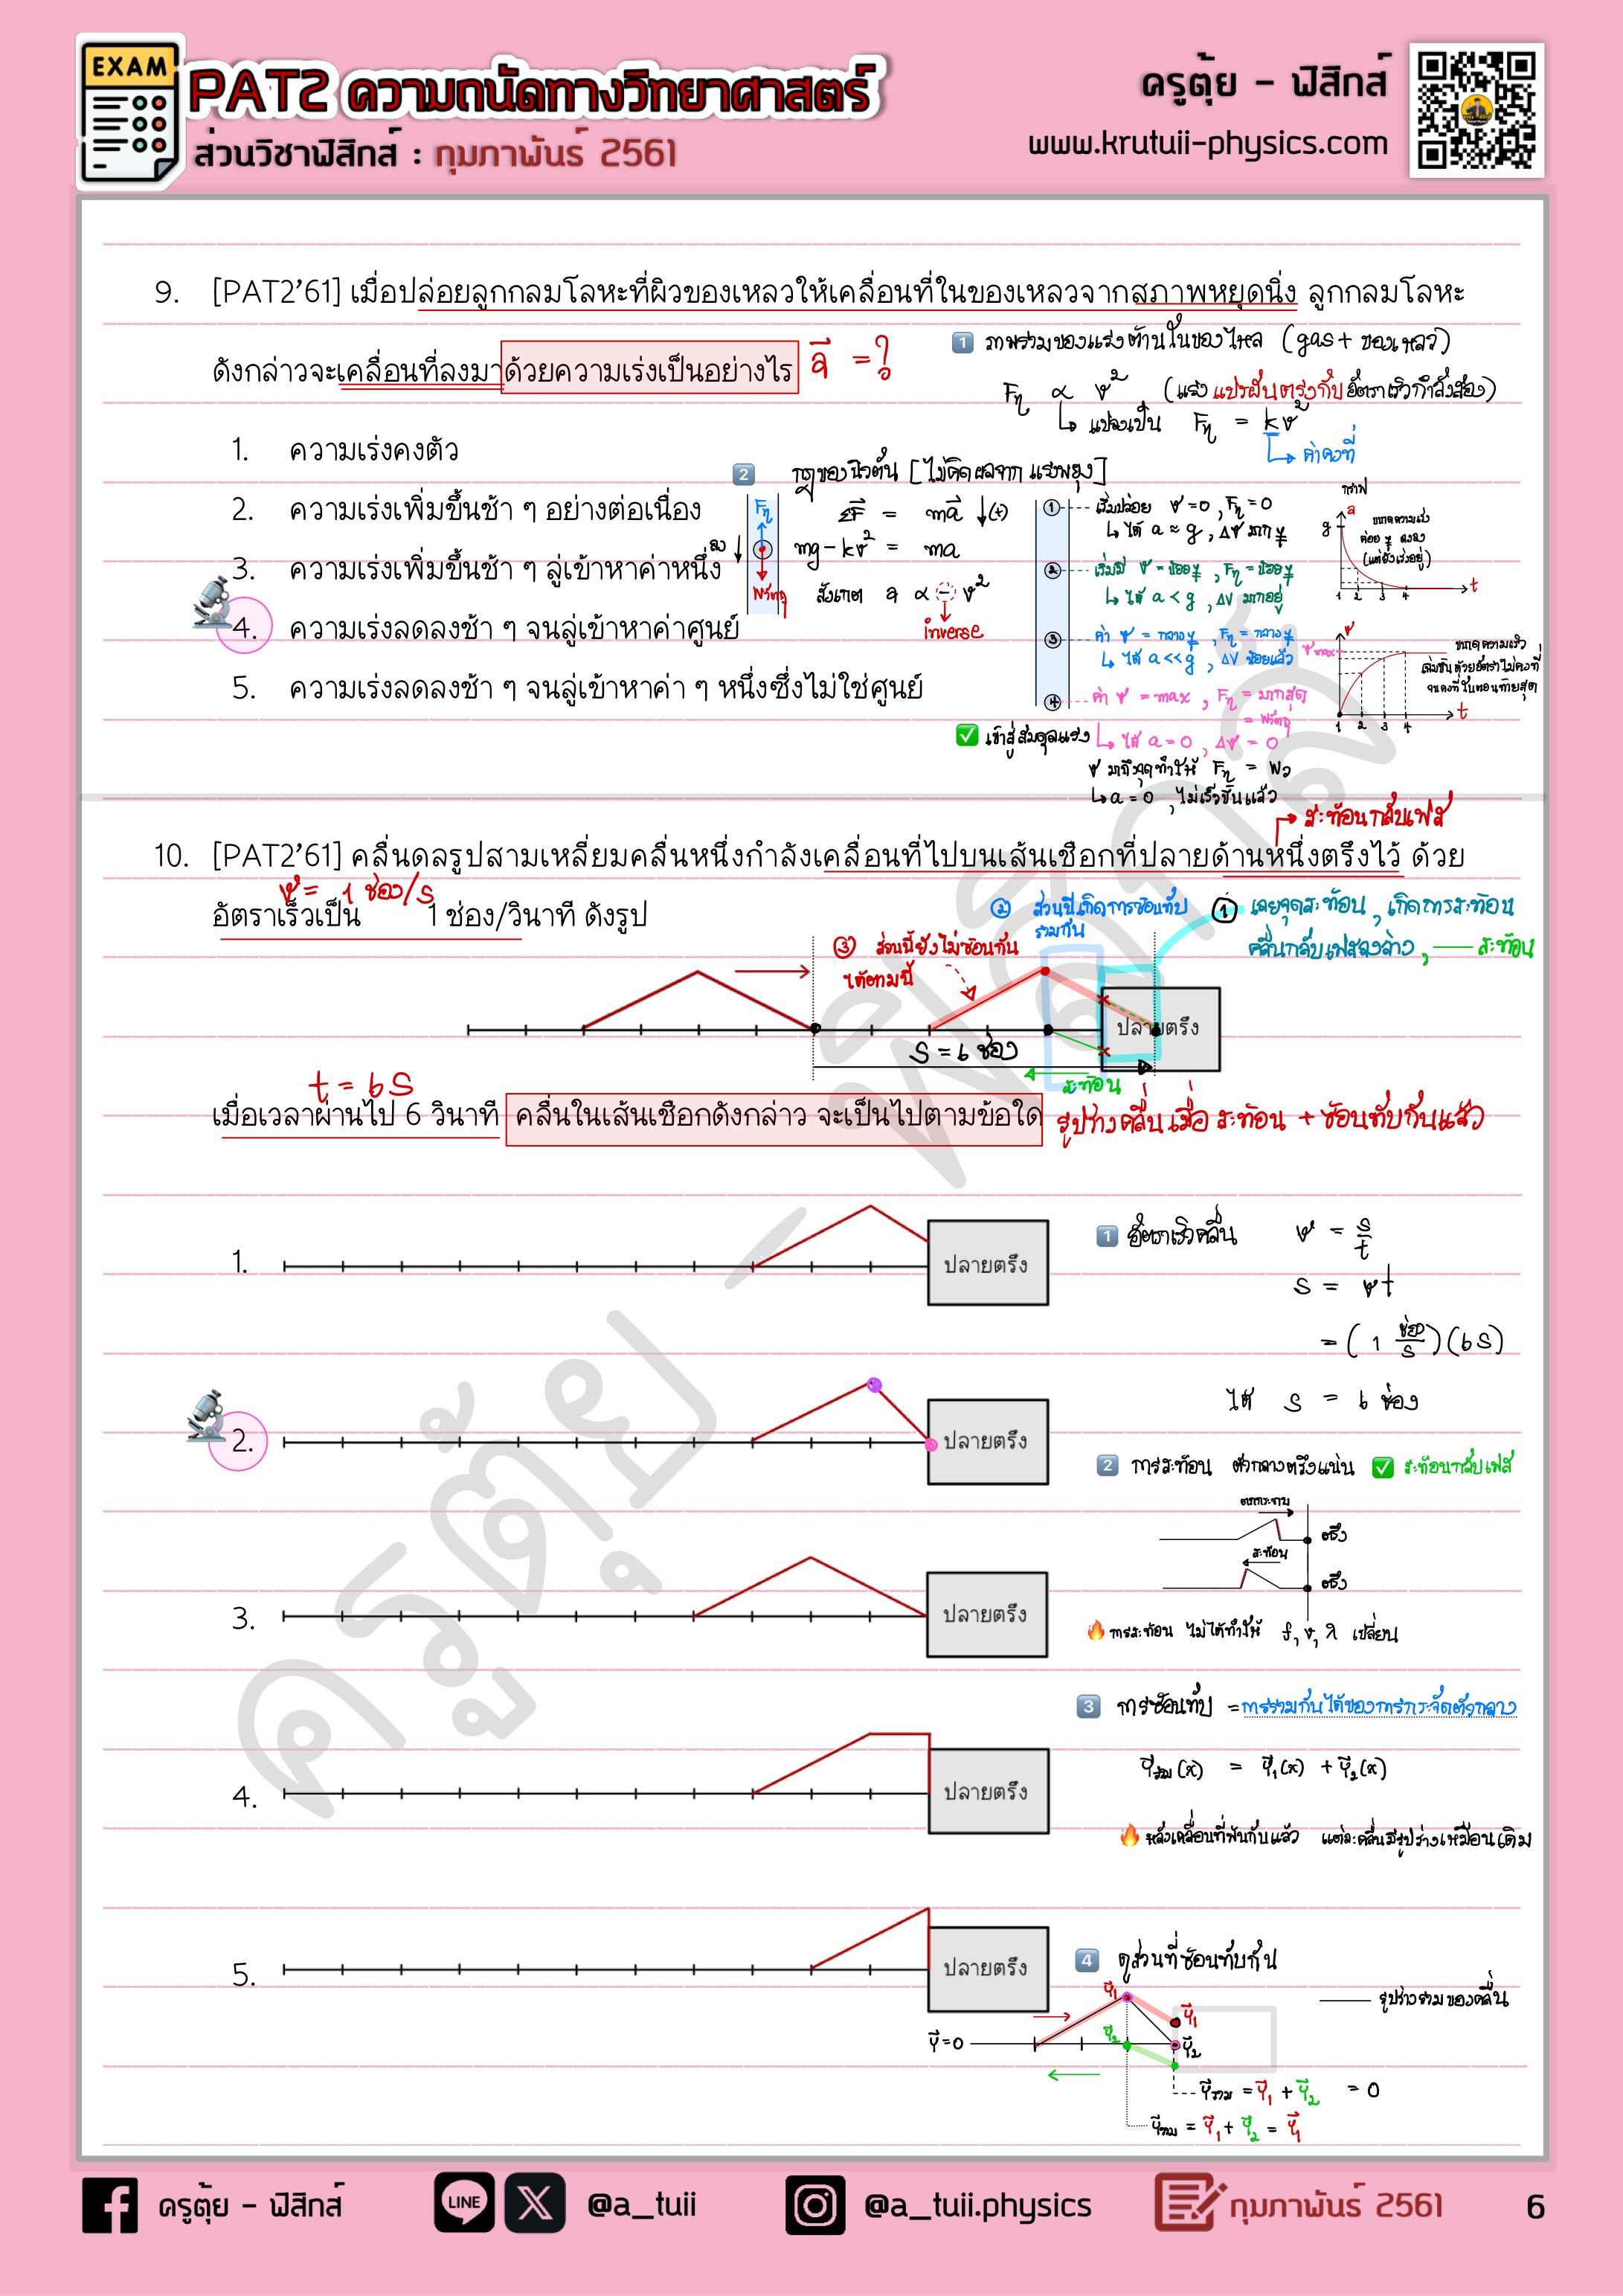 EXAM
PAT2 ความถนัดทางวิทยาศาสตร์
ส่วนวิชาฟิสิกส์ : กุมภาพันธ์ 2561
ครูตุ้ย - ฟิสิกส์
www.krutuii-physics.com
9. [PAT2'61] เมื่อปล่อยลูกกลมโลหะที่ผิวของเหลวให้เคลื่อนที่ในของเหลวจากสภาพหยุดนิ่ง ลูกกลมโลหะ
ดังกล่าวจะเคลื่อนที่ลงมาด้วยความเร่งเป็นอย่างไร a⃗ = ?
1. ความเร่งคงตัว
2. ความเร่งเพิ่มขึ้นช้า ๆ อย่างต่อเนื่อง
3. ความเร่งเพิ่มขึ้นช้า ๆ ลู่เข้าหาค่าหนึ่ง
4. ความเร่งลดลงช้า ๆ จนลู่เข้าหาค่าศูนย์
5. ความเร่งลดลงช้า ๆ จนลู่เข้าหาค่า ๆ หนึ่งซึ่งไม่ใช่ศูนย์
1 ภาพรวมของแรงต้านในของไหล (gas + ของเหลว)
Fη ∝ v² (แรงแปรผันตรงกับอัตราเร็วกำลังสอง)
↳ แปลงเป็น Fη = kv²
↳ ค่าคงที่
2 กฎของนิวตัน [ไม่คิดผลจากแรงพยุง]
Fη
ลง
Wวัตถุ
ΣF⃗ = ma⃗ ↓(+)
mg - kv² = ma
สังเกต a ∝ - v²
inverse
① เริ่มปล่อย v = 0, Fη = 0
↳ ได้ a ≈ g, Δv มาก ๆ
② เริ่มมี v = น้อย ๆ, Fη = น้อย ๆ
↳ ได้ a < g, Δv มากอยู่
③ ค่า v = กลาง ๆ, Fη = กลาง ๆ
↳ ได้ a << g, Δv น้อยแล้ว
④ ค่า v = max, Fη = มากสุด
= Wวัตถุ
✅ เข้าสู่สมดุลแรง ↳ ได้ a = 0, Δv = 0
v มาถึงจุดทำให้ Fη = Wว
↳ a = 0, ไม่เร็วขึ้นแล้ว
กราฟ
a
g
ขนาดความเร่ง
ค่อย ๆ ลดลง
(แต่ยังเร่งอยู่)
1 2 3 4 t
v
v max
ขนาดความเร็ว
เพิ่มขึ้นด้วยอัตราไม่คงที่
จนคงที่ในตอนท้ายสุด
1 2 3 4 t
สะท้อนกลับเฟส
10. [PAT2'61] คลื่นดลรูปสามเหลี่ยมคลื่นหนึ่งกำลังเคลื่อนที่ไปบนเส้นเชือกที่ปลายด้านหนึ่งตรึงไว้ ด้วย
v = 1 ช่อง/s
อัตราเร็วเป็น 1 ช่อง/วินาที ดังรูป
② ส่วนนี้เกิดการซ้อนทับ
รวมกัน
① เลยจุดสะท้อน, เกิดการสะท้อน
คลื่นกลับเฟสลงล่าง, — สะท้อน
③ ส่วนนี้ยังไม่ซ้อนกัน
ได้ตามนี้
ปลายตรึง
S = 6 ช่อง
สะท้อน
t = 6 s
เมื่อเวลาผ่านไป 6 วินาที คลื่นในเส้นเชือกดังกล่าว จะเป็นไปตามข้อใด รูปร่างคลื่นเมื่อ สะท้อน + ซ้อนทับกันแล้ว
1. ปลายตรึง
2. ปลายตรึง
3. ปลายตรึง
4. ปลายตรึง
5. ปลายตรึง
1 อัตราเร็วคลื่น v = s/t
s = vt
= (1 ช่อง/s)(6 s)
ได้ s = 6 ช่อง
2 การสะท้อน ตัวกลางตรึงแน่น ✅ สะท้อนกลับเฟส
ตกกระทบ
ตรึง
สะท้อน
ตรึง
🔥 การสะท้อน ไม่ได้ทำให้ f, v, λ เปลี่ยน
3 การซ้อนทับ = การรวมกันได้ของการกระจัดตัวกลาง
y⃗รวม(x) = y⃗₁(x) + y⃗₂(x)
🔥 หลังเคลื่อนที่พ้นกันแล้ว แต่ละคลื่นมีรูปร่างเหมือนเดิม
4 ดูส่วนที่ซ้อนทับกัน
— รูปร่างรวมของคลื่น
y⃗₁
y⃗₁
y⃗ = 0
y⃗₂
y⃗₂
y⃗รวม = y⃗₁ + y⃗₂ = 0
y⃗รวม = y⃗₁ + y⃗₂ = y⃗₁
ครูตุ้ย - ฟิสิกส์
ครูตุ้ย - ฟิสิกส์
LINE
@a_tuii
@a_tuii.physics
กุมภาพันธ์ 2561
6